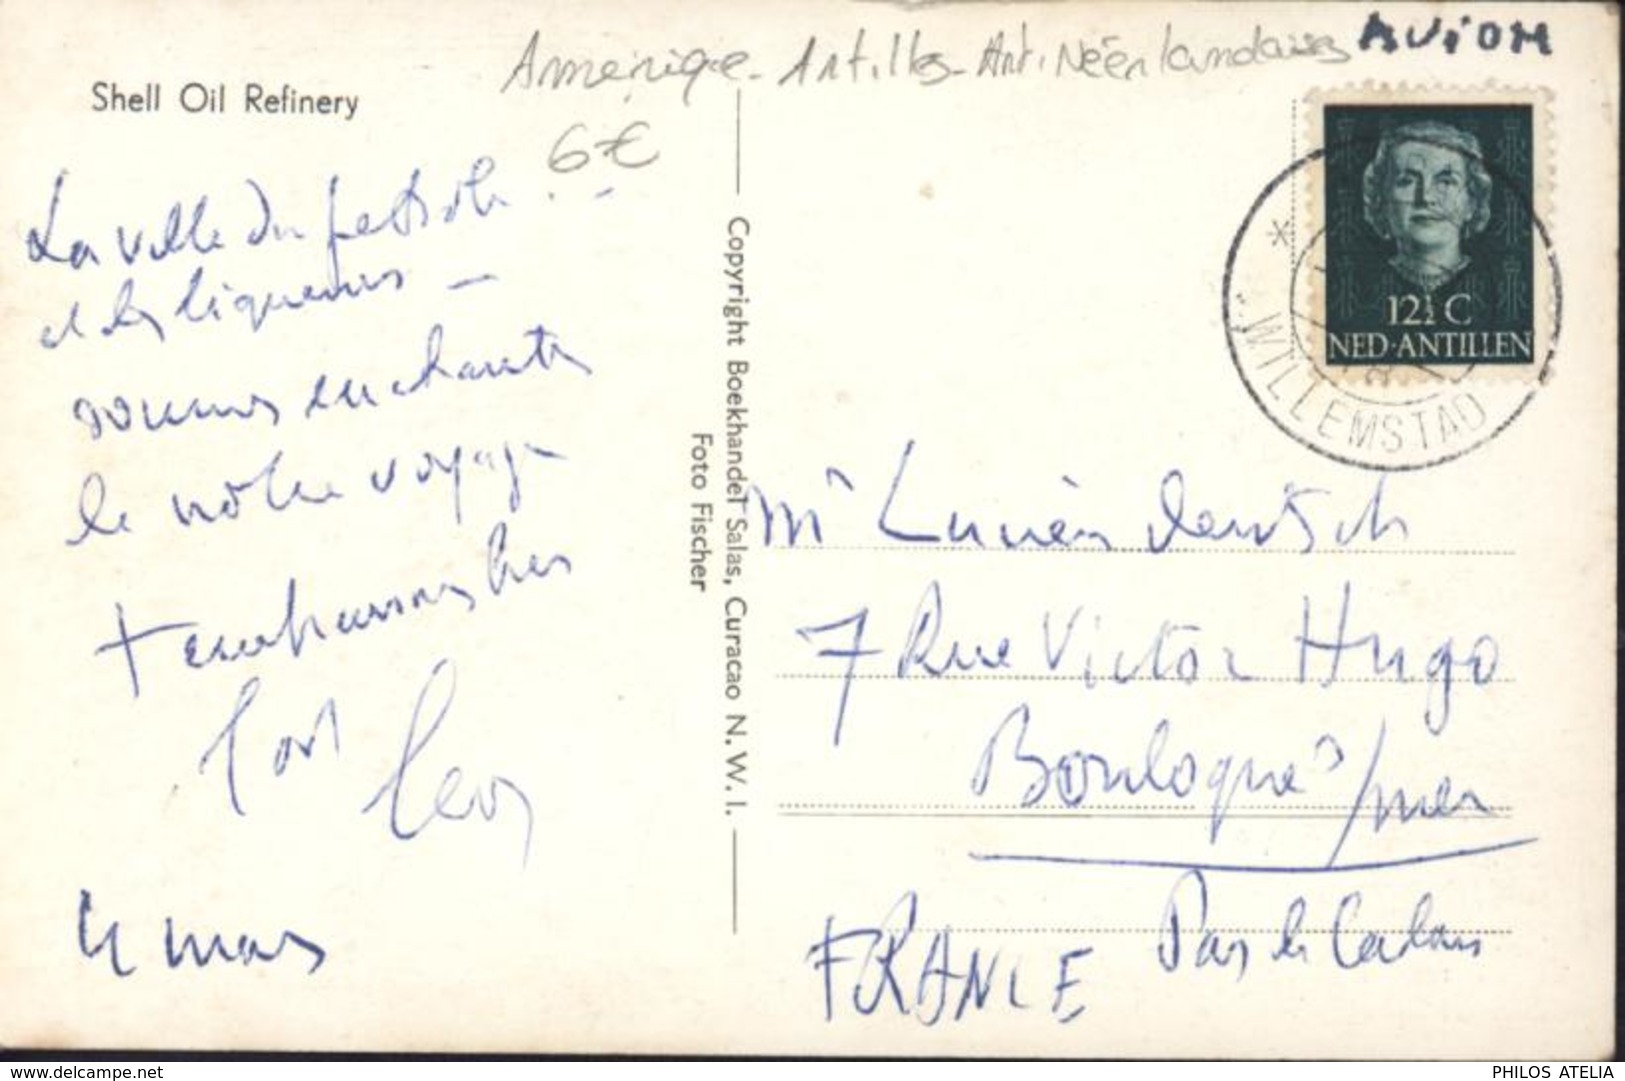 Amérique - Antilles - Ant. Néerlandaises AVION
6€
Shell Oil Refinery
La ville du pétrole
et des liqueurs -
sommes enchantés
de notre voyage
+ embrassons bien
4 mars
Copyright Boekhandel Salas, Curacao N.W.I.
Foto Fischer
12½ C
NED·ANTILLEN
WILLEMSTAD
Mr Lucien deutsch
7 Rue Victor Hugo
Boulogne s/mer
Pas de Calais
FRANCE
www.delcampe.net
PHILOS ATELIA